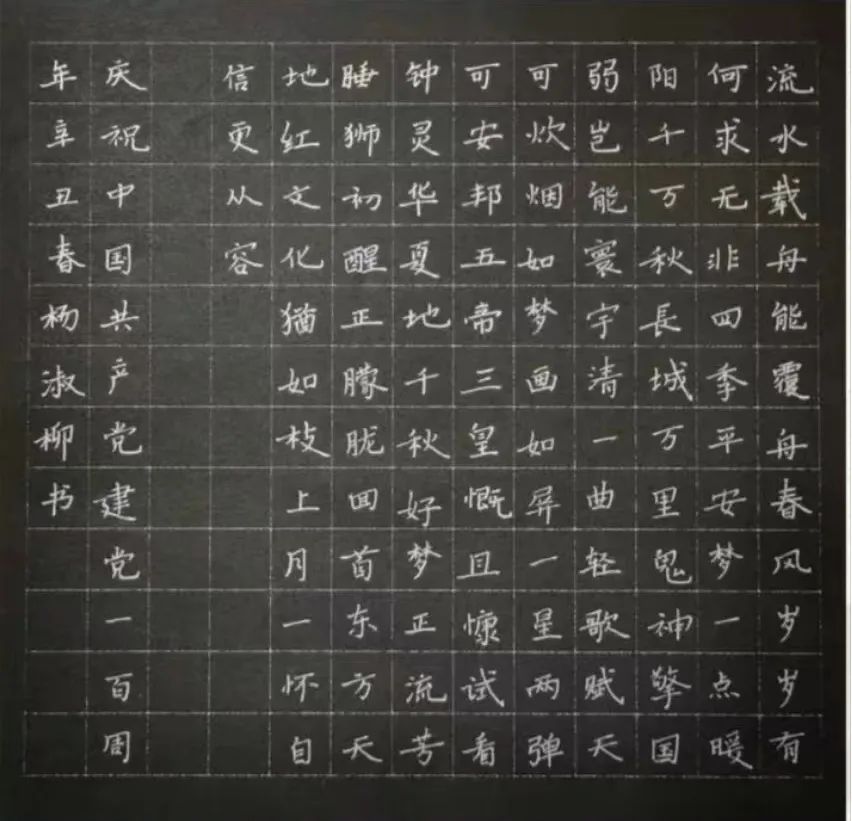 流水载舟能覆舟春风岁岁有
何求无非四季平安梦一点暖
阳千万秋長城万里鬼神擎国
弱岂能寰宇清一曲轻歌赋天
可炊烟如梦画如屏一星两弹
可安邦五帝三皇慨且慷试看
钟灵华夏地千秋好梦正流芳
睡狮初醒正朦胧回首东方天
地红文化猶如枝上月一怀自
信更从容
庆祝中国共产党建党一百周
年辛丑春杨淑柳书